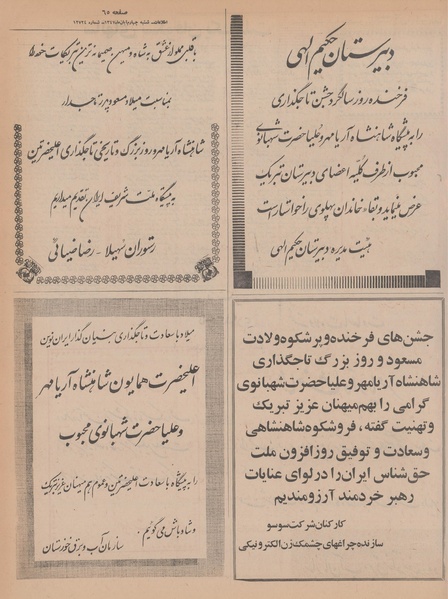 صفحه ۶۵
اطلاعات شنبه چهارم آبان ماه ۱۳۴۷ شماره
دبیرستان حکیم الهی
فرخنده روز سالگرد جشن تاجگذاری
را به پیشگاه شاهنشاه آریامهر و علیاحضرت شهبانوی
محبوب از طرف کلیه اعضای دبیرستان تبریک
عرض مینماید و بقاء خاندان پهلوی را خواستار است
هیئت مدیره دبیرستان حکیم الهی
با قلبی مملو از عشق به شاه و میهن صمیمانه ترین تبریکات خود را
بمناسبت میلاد مسعود پدر تاجدار
شاهنشاه آریامهر و روز بزرگ و تاریخی تاجگذاری اعلیحضرتین
به پیشگاه ملت شریف ایران تقدیم میداریم
رستوران سهیلا - رضا ضیائی
جشن‌های فرخنده و پرشکوه ولادت
مسعود و روز بزرگ تاجگذاری
شاهنشاه آریامهر و علیاحضرت شهبانوی
گرامی را بهم‌میهنان عزیز تبریک
و تهنیت گفته، فروشکوه شاهنشاهی
و سعادت و توفیق روزافزون ملت
حق‌شناس ایران را در لوای عنایات
رهبر خردمند آرزومندیم
کارکنان شرکت سوسو
سازنده چراغهای چشمک‌زن الکترونیکی
میلاد با سعادت و تاجگذاری بنیان گذار ایران نوین
اعلیحضرت همایون شاهنشاه آریامهر
و علیاحضرت شهبانوی محبوب
را به پیشگاه با سعادت اعلیحضرتین و عموم هم میهنان عزیز تبریک
و شادباش می گوئیم.
سازمان آب و برق خوزستان